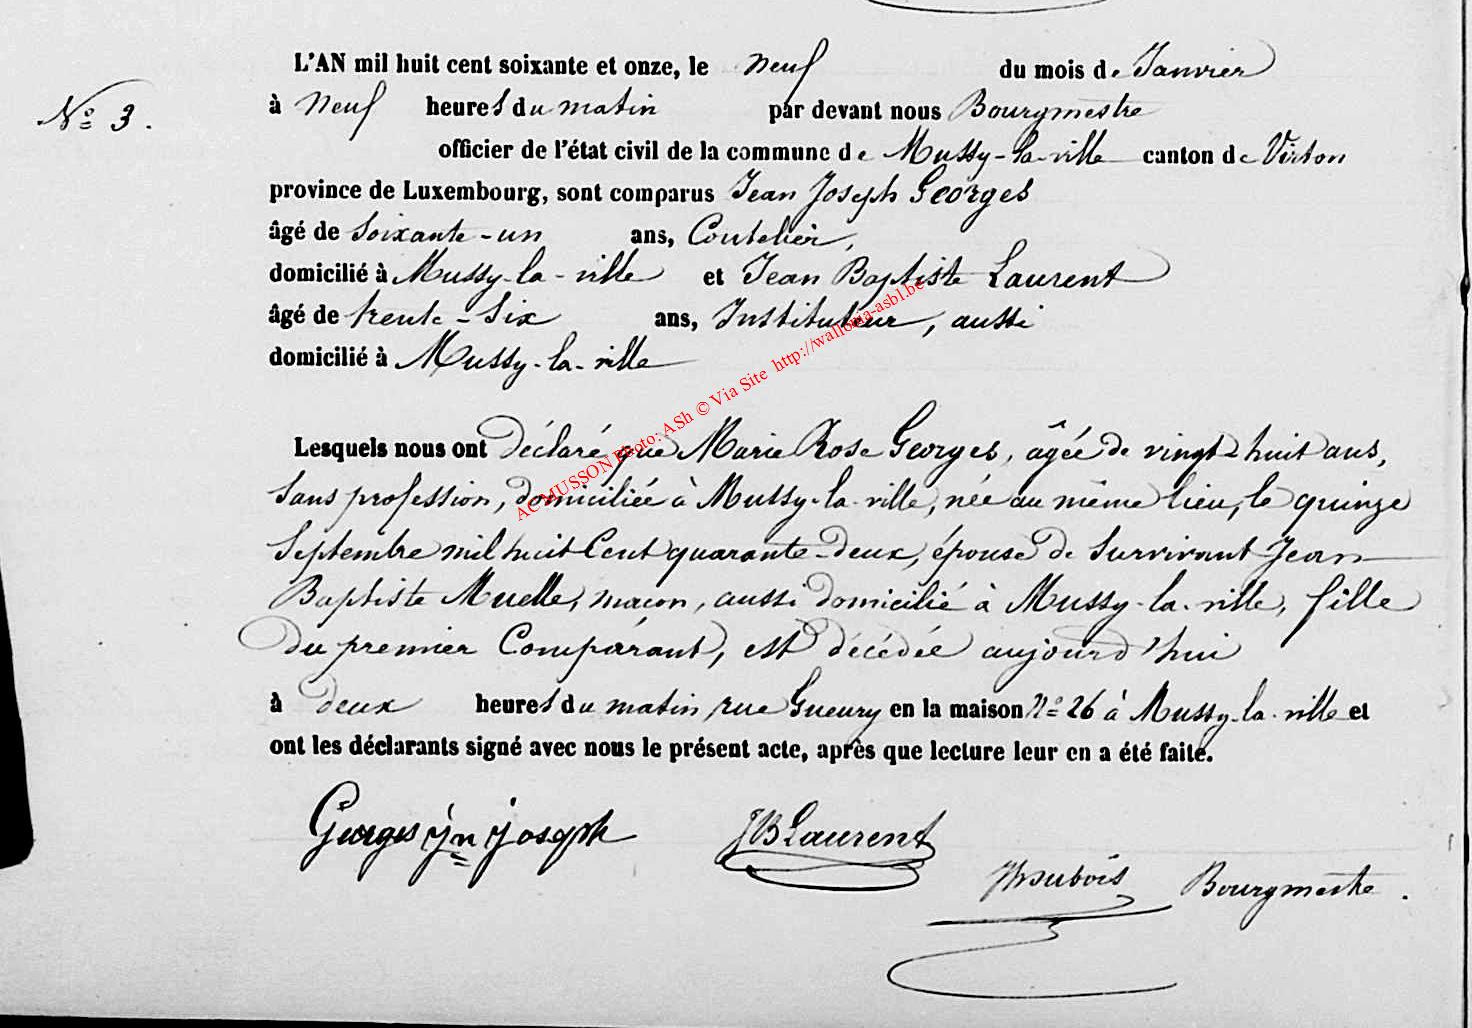 L'AN mil huit cent soixante et onze, le Neuf du mois de Janvier
N° 3.
à Neuf heures du matin par devant nous Bourgmestre
officier de l'état civil de la commune de Mussy-la-ville canton de Virton
province de Luxembourg, sont comparus Jean Joseph Georges
âgé de soixante-un ans, Coutelier,
domicilié à Mussy-la-ville et Jean Baptiste Laurent
âgé de trente-six ans, Instituteur, aussi
domicilié à Mussy-la-ville
Lesquels nous ont déclaré que Marie Rose Georges, âgée de vingt-huit ans,
sans profession, domiciliée à Mussy-la-ville, née au même lieu, le quinze
Septembre mil huit Cent quarante-deux, épouse de survivant Jean
Baptiste Muelle, maçon, aussi domicilié à Mussy-la-ville, fille
du premier Comparant, est décédée aujourd'hui
à deux heures du matin, rue Gueury en la maison N° 26 à Mussy-la-ville et
ont les déclarants signé avec nous le présent acte, après que lecture leur en a été faite.
Georges Jn Joseph
JB Laurent
Dubois Bourgmestre.
AC MUSSON Photo: ASh © Via Site http://wallonia-asbl.be